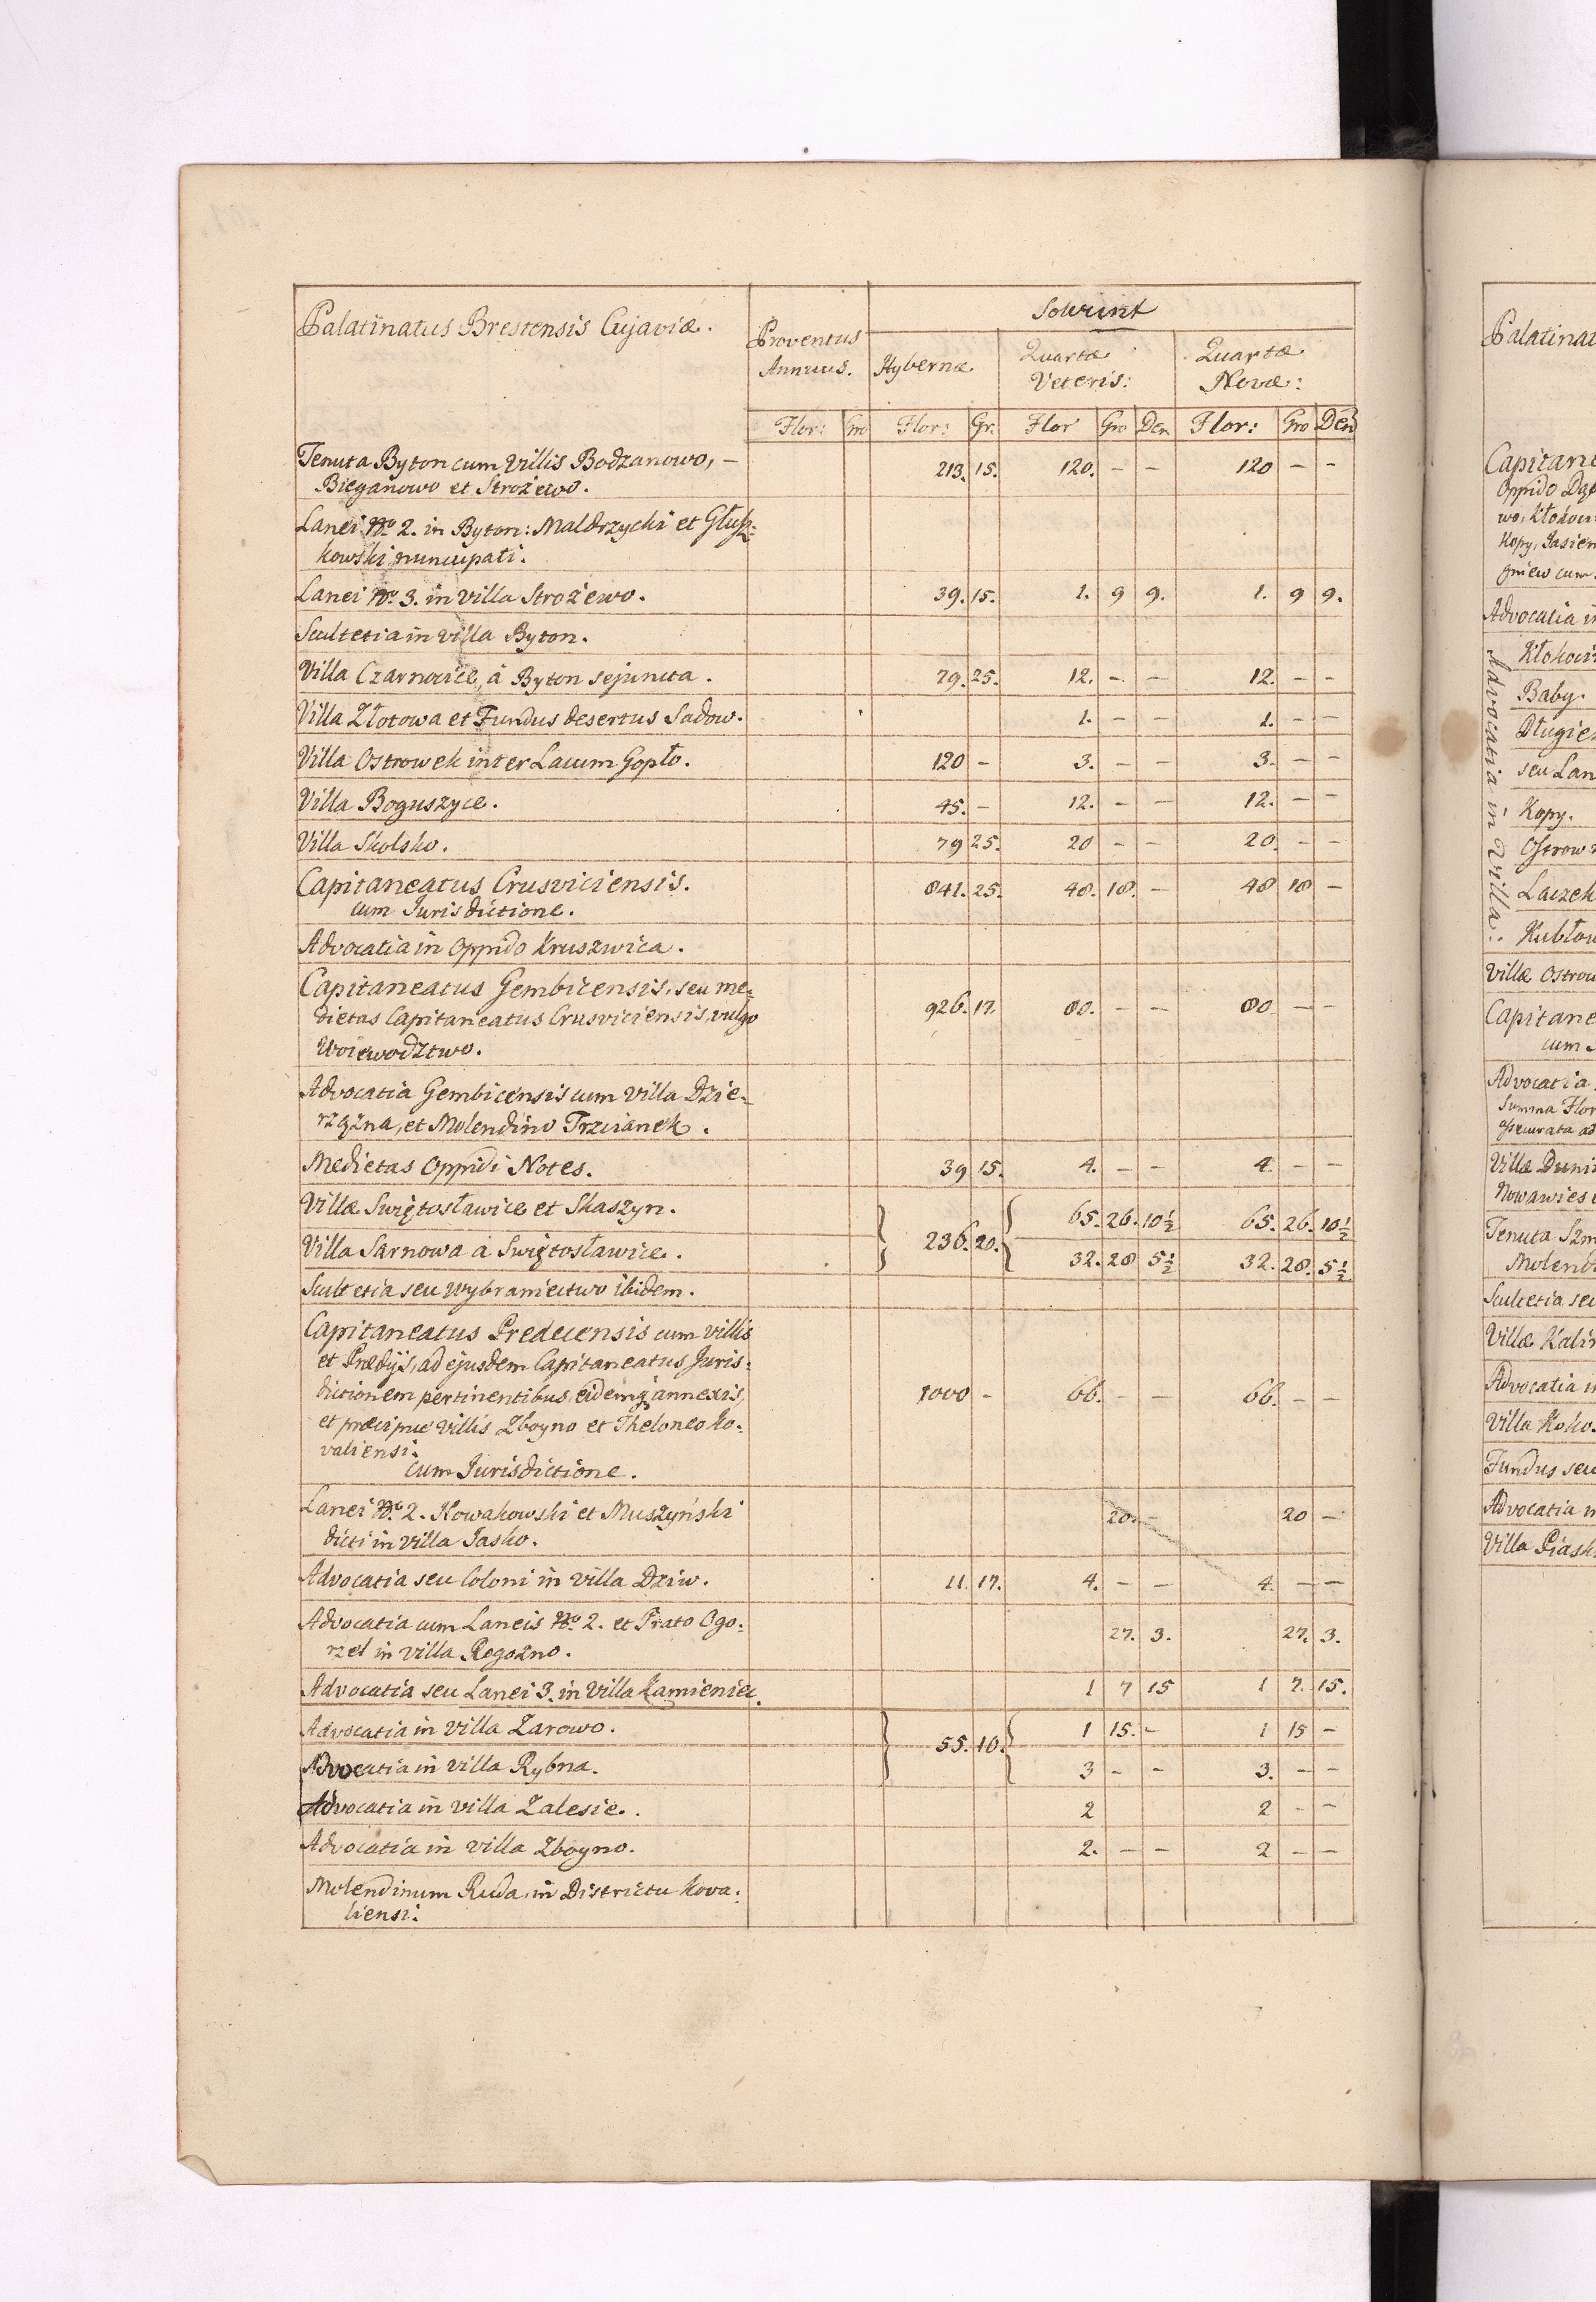 Palatinatus Brestensis Cujaviæ.
Proventus Annuus.
Solvunt
Hybernæ
Quartæ Veteris:
Quartæ Novæ:
Flor: Gro Flor: Gr. Flor Gro Den Flor: Gro Den
Tenuta Byton cum Villis Bodzanowo, – 213. 15. 120. – – 120 – –
Bieganowo et Strożewo.
Lanei No. 2. in Byton: Maldrzycki et Głusz-
kowski nuncupati.
Lanei No. 3. in villa Strożewo. 39. 15. 1. 9 9. 1. 9 9.
Scultetia in villa Byton.
Villa Czarnocice, à Byton sejuncta. 79. 25. 12. – – 12. – –
Villa Złotowa et Fundus desertus Sadow. 1. – – 1. – –
Villa Ostrowek inter Lacum Gopło. 120 – 3. – – 3. – –
Villa Boguszyce. 45. – 12. – – 12. – –
Villa Skolsko. 79 25. 20 – – 20. – –
Capitaneatus Crusviciensis. 841. 25. 48. 18. – 48 18 –
cum Jurisdictione.
Advocatia in Oppido Kruszwica.
Capitaneatus Gembicensis, seu me-
dietas Capitaneatus Crusviciensis, vulgo 926. 17. 80. – – 80 – –
Woiewodztwo.
Advocatia Gembicensis cum Villa Dzie-
rzązna, et Molendino Trzcianek.
Medietas Oppidi Notes. 39 15. 4. – – 4. – –
Villæ Swiętosławice et Skaszyn. 65. 26. 10½ 65. 26. 10½
236. 20.
Villa Sarnowa a Swiętosławice. 32. 28 5½ 32. 28. 5½
Scultetia seu Wybraniectwo ibidem.
Capitaneatus Predecensis cum villis
et Prædijs, ad ejusdem Capitaneatus Juris-
dictionem pertinentibus, eidemq annexis, 1000 – 66. – – 66. – –
et præcipue Villis Zboyno et Theloneo Ko-
valiensi.
cum Jurisdictione.
Lanei No. 2. Kowakowski et Muszyński 20. – 20 –
dicti in villa Jasko.
Advocatia seu Coloni in villa Dziw. 11. 17. 4. – – 4. – –
Advocatia cum Laneis No. 2. et Prato Ogo- 27. 3. 27. 3.
rzel in villa Rogoźno.
Advocatia seu Lanei 3. in Villa Kamieniec. 1 7 15 1 7. 15.
Advocatia in villa Zarowo. 1 15. – 1 15 –
55. 10.
Advocatia in villa Rybna. 3 – – 3. – –
Advocatia in villa Zalesie. 2 2 – –
Advocatia in villa Zboyno. 2. – – 2 – –
Molendinum Ruda, in Districtu Kova-
liensi.
Palatinat
Capitane
Oppido
wo, Kłokow
Kopy, Jasien
gniew cum
Advocatia i
Advocatia in Villa
Baby.
Długie
seu Lan
Kopy.
Ostrow
Villæ Ostrow
Capitane
cum
Advocatia
Summa Flor
Nowawies
Tenuta Szm
Molend
Scultetia seu
Villæ Kalin
Advocatia i
Villa Koko
Fundus seu
Advocatia
Villa Piask